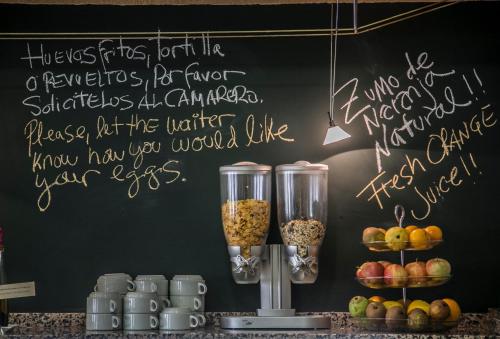 Huevos fritos, tortilla
o Revueltos, Por favor
Solicitelos AL CAMARERO.
Please, let the waiter
know how you would like
your eggs.
Zumo de
Naranja
Natural!!
Fresh ORANGE
Juice!!